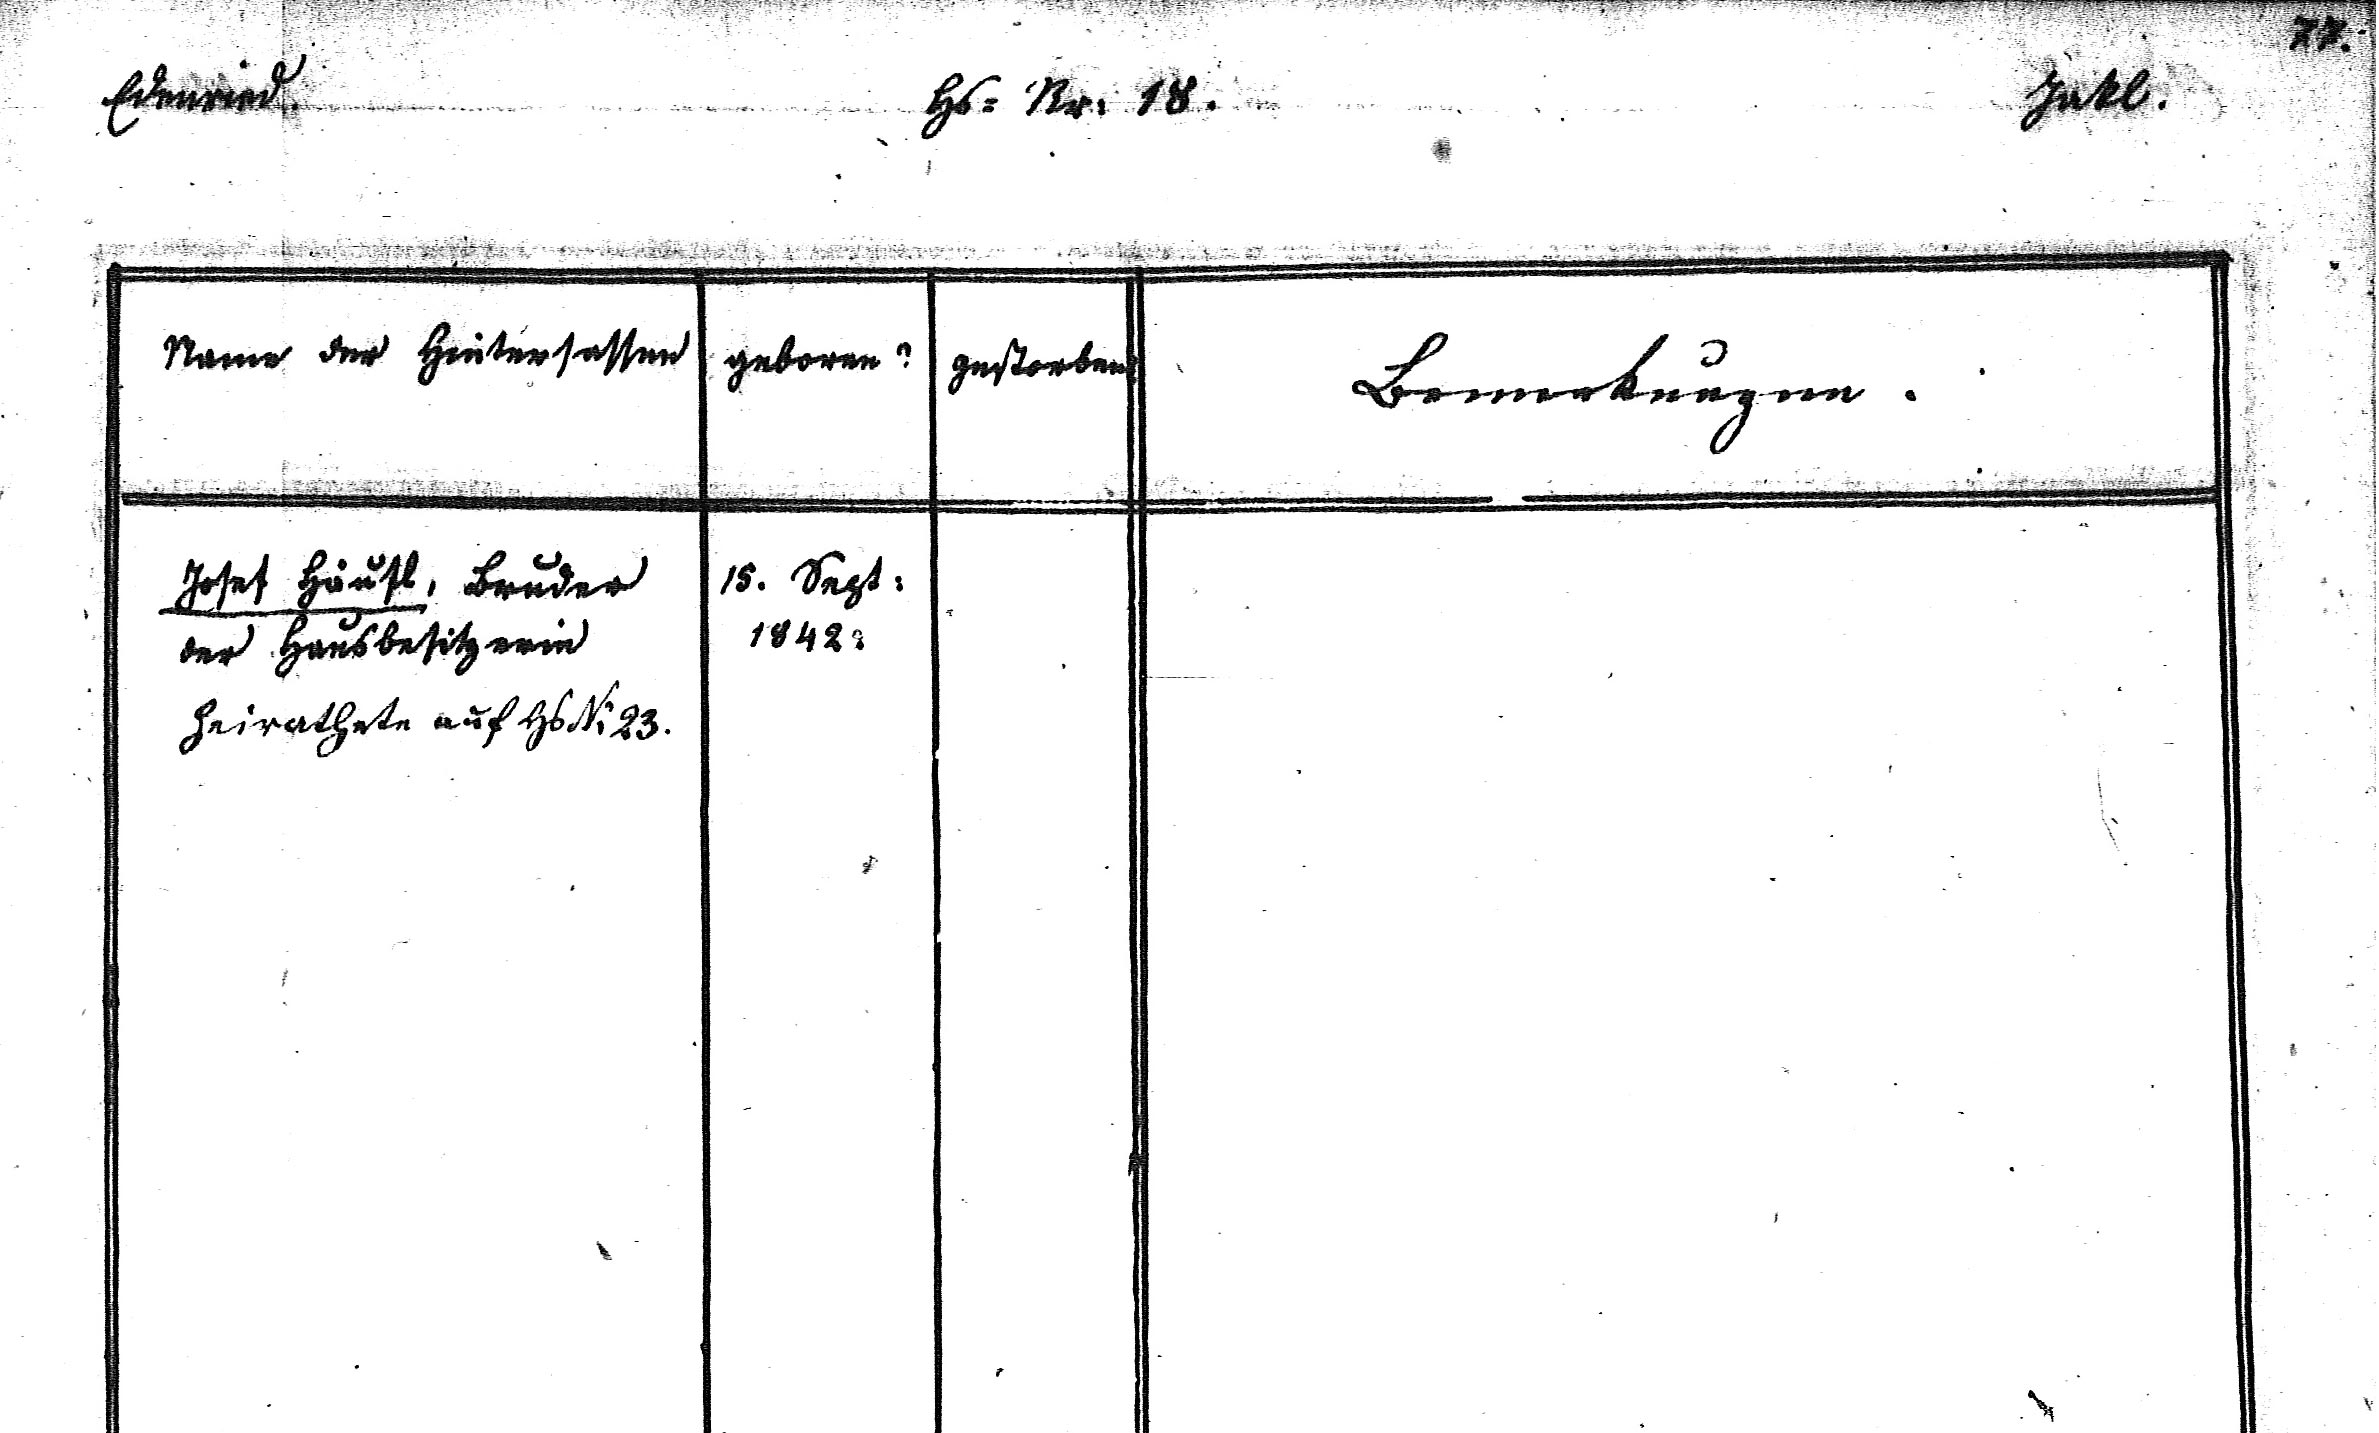 77.
Edenried.
Hs= Nr: 18.
Jakl.
Name der Hintersassen
geboren?
gestorben?
Bemerkungen.
Josef Häusl, Bruder
der Hausbesitzerin
heirathete auf Hs Nr 23.
15. Sept:
1842: